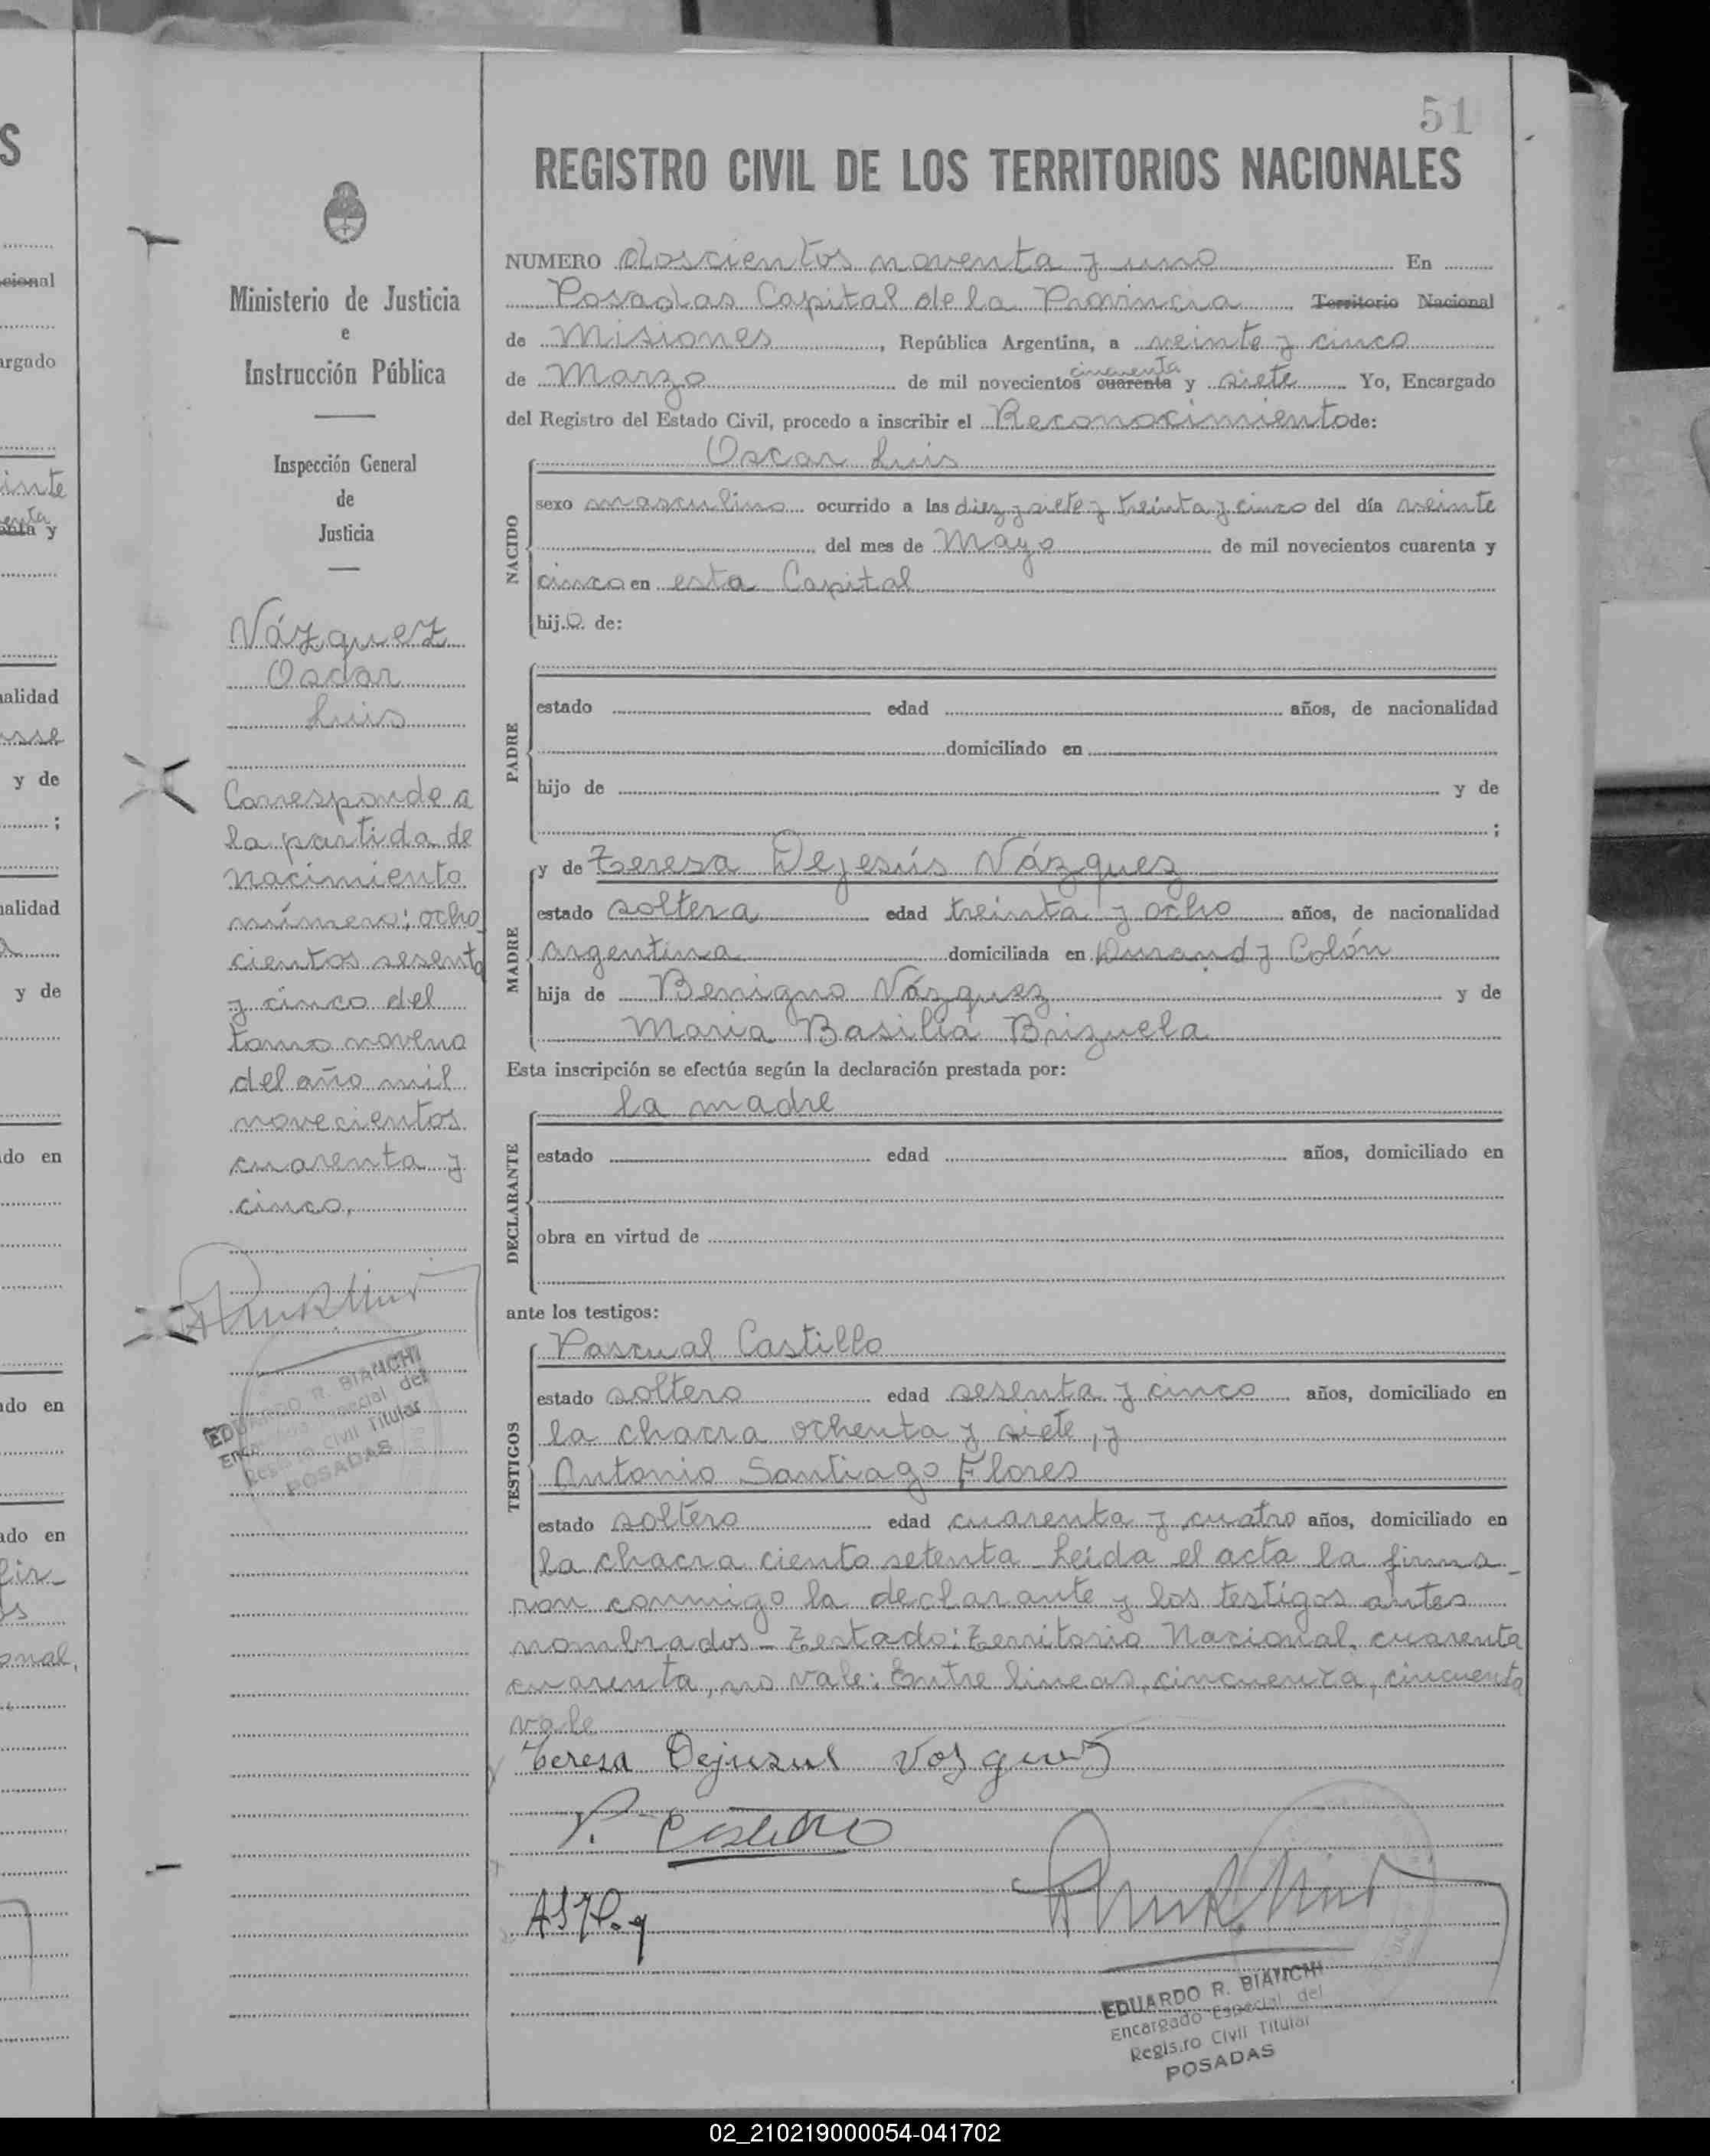 51
REGISTRO CIVIL DE LOS TERRITORIOS NACIONALES
NUMERO doscientos noventa y uno En
Posadas Capital de la Provincia Territorio Nacional
de Misiones, República Argentina, a veinte y cinco
de Marzo de mil novecientos cuarenta cincuenta y siete Yo, Encargado
del Registro del Estado Civil, procedo a inscribir el Reconocimiento de:
Oscar Luis
NACIDO
sexo masculino ocurrido a las diez y siete y treinta y cinco del día veinte
del mes de Mayo de mil novecientos cuarenta y
cinco en esta Capital
hijo de:
PADRE
estado edad años, de nacionalidad
domiciliado en
hijo de y de
;
MADRE
y de Teresa Dejesús Vázquez
estado soltera edad treinta y ocho años, de nacionalidad
argentina domiciliada en Durand y Colón
hija de Benigno Vázquez y de
Maria Basilia Brizuela
Esta inscripción se efectúa según la declaración prestada por:
la madre
DECLARANTE
estado edad años, domiciliado en
obra en virtud de
ante los testigos:
TESTIGOS
Pascual Castillo
estado soltero edad sesenta y cinco años, domiciliado en
la chacra ochenta y siete, y
Antonio Santiago Flores
estado soltero edad cuarenta y cuatro años, domiciliado en
la chacra ciento setenta Leída el acta la firma_
ron conmigo la declarante y los testigos antes
nombrados - Testado: Territorio Nacional, cuarenta
cuarenta, no vale: Entre lineas, cincuenta, cincuenta
vale
Teresa Dejusul Vozquez
P. Castillo
EDUARDO R. BIANCHI
Encargado Especial del
Regis.ro Civil Titular
POSADAS
Ministerio de Justicia
e
Instrucción Pública
Inspección General
de
Justicia
Vázquez
Oscar
Luis
Corresponde a
la partida de
nacimiento
número: ocho_
cientos sesenta
y cinco del
tomo noveno
del año mil
novecientos
cuarenta y
cinco.
EDUARDO R. BIANCHI
Encargado Especial del
Registro Civil Titular
POSADAS
S
cional
argado
inte
enta
enta y
alidad
y de
;
alidad
a
y de
do en
do en
do en
fir_
os
onal,
02_210219000054-041702